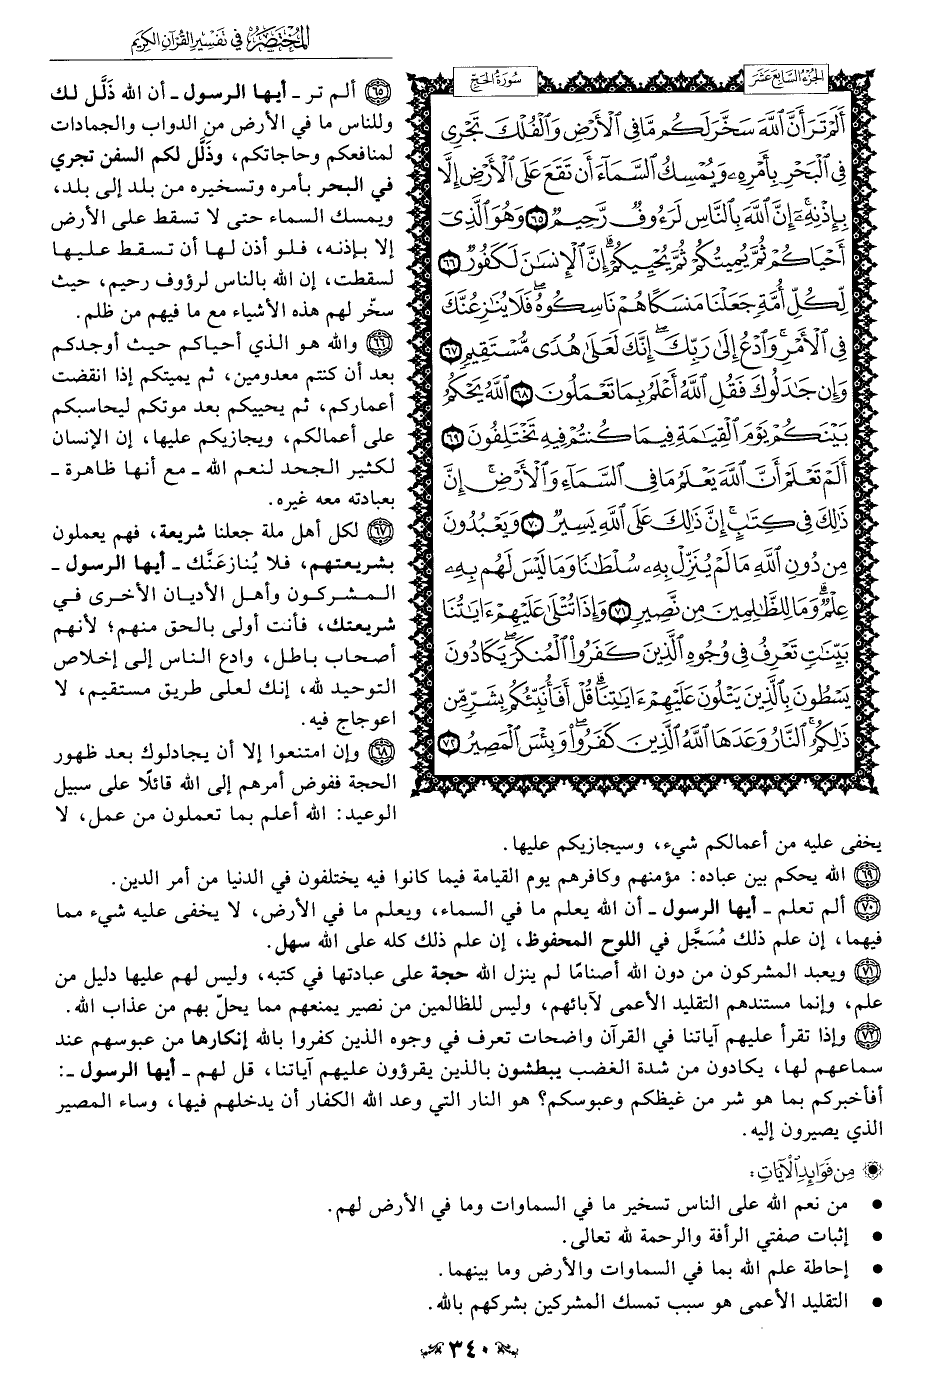 المختصر في تفسير القرآن الكريم
الجزء السابع عشر
سورة الحج
أَلَمْ تَرَ أَنَّ ٱللَّهَ سَخَّرَ لَكُم مَّا فِى ٱلْأَرْضِ وَٱلْفُلْكَ تَجْرِى
فِى ٱلْبَحْرِ بِأَمْرِهِۦ وَيُمْسِكُ ٱلسَّمَآءَ أَن تَقَعَ عَلَى ٱلْأَرْضِ إِلَّا
بِإِذْنِهِۦٓ ۗ إِنَّ ٱللَّهَ بِٱلنَّاسِ لَرَءُوفٌ رَّحِيمٌ ٦٥ وَهُوَ ٱلَّذِىٓ
أَحْيَاكُمْ ثُمَّ يُمِيتُكُمْ ثُمَّ يُحْيِيكُمْ ۗ إِنَّ ٱلْإِنسَٰنَ لَكَفُورٌ ٦٦
لِّكُلِّ أُمَّةٍ جَعَلْنَا مَنسَكًا هُمْ نَاسِكُوهُ ۖ فَلَا يُنَٰزِعُنَّكَ
فِى ٱلْأَمْرِ ۚ وَٱدْعُ إِلَىٰ رَبِّكَ ۖ إِنَّكَ لَعَلَىٰ هُدًى مُّسْتَقِيمٍ ٦٧
وَإِن جَٰدَلُوكَ فَقُلِ ٱللَّهُ أَعْلَمُ بِمَا تَعْمَلُونَ ٦٨ ٱللَّهُ يَحْكُمُ
بَيْنَكُمْ يَوْمَ ٱلْقِيَٰمَةِ فِيمَا كُنتُمْ فِيهِ تَخْتَلِفُونَ ٦٩
أَلَمْ تَعْلَمْ أَنَّ ٱللَّهَ يَعْلَمُ مَا فِى ٱلسَّمَآءِ وَٱلْأَرْضِ ۗ إِنَّ
ذَٰلِكَ فِى كِتَٰبٍ ۚ إِنَّ ذَٰلِكَ عَلَى ٱللَّهِ يَسِيرٌ ٧٠ وَيَعْبُدُونَ
مِن دُونِ ٱللَّهِ مَا لَمْ يُنَزِّلْ بِهِۦ سُلْطَٰنًا وَمَا لَيْسَ لَهُم بِهِۦ
عِلْمٌ ۗ وَمَا لِلظَّٰلِمِينَ مِن نَّصِيرٍ ٧١ وَإِذَا تُتْلَىٰ عَلَيْهِمْ ءَايَٰتُنَا
بَيِّنَٰتٍ تَعْرِفُ فِى وُجُوهِ ٱلَّذِينَ كَفَرُوا۟ ٱلْمُنكَرَ ۖ يَكَادُونَ
يَسْطُونَ بِٱلَّذِينَ يَتْلُونَ عَلَيْهِمْ ءَايَٰتِنَا ۗ قُلْ أَفَأُنَبِّئُكُم بِشَرٍّ مِّن
ذَٰلِكُمُ ۗ ٱلنَّارُ وَعَدَهَا ٱللَّهُ ٱلَّذِينَ كَفَرُوا۟ ۖ وَبِئْسَ ٱلْمَصِيرُ ٧٢
٦٥ ألم تر ـ أيها الرسول ـ أن الله ذَلَّل لك
وللناس ما في الأرض من الدواب والجمادات
لمنافعكم وحاجاتكم، وذَلَّل لكم السفن تجري
في البحر بأمره وتسخيره من بلد إلى بلد،
ويمسك السماء حتى لا تسقط على الأرض
إلا بإذنه، فلو أذن لها أن تسقط عليها
لسقطت، إن الله بالناس لرؤوف رحيم، حيث
سخّر لهم هذه الأشياء مع ما فيهم من ظلم.
٦٦ والله هو الذي أحياكم حيث أوجدكم
بعد أن كنتم معدومين، ثم يميتكم إذا انقضت
أعماركم، ثم يحييكم بعد موتكم ليحاسبكم
على أعمالكم، ويجازيكم عليها، إن الإنسان
لكثير الجحد لنعم الله ـ مع أنها ظاهرة ـ
بعبادته معه غيره.
٦٧ لكل أهل ملة جعلنا شريعة، فهم يعملون
بشريعتهم، فلا يُنازعَنَّك ـ أيها الرسول ـ
المشركون وأهل الأديان الأخرى في
شريعتك، فأنت أولى بالحق منهم؛ لأنهم
أصحاب باطل، وادع الناس إلى إخلاص
التوحيد لله، إنك لعلى طريق مستقيم، لا
اعوجاج فيه.
٦٨ وإن امتنعوا إلا أن يجادلوك بعد ظهور
الحجة ففوض أمرهم إلى الله قائلًا على سبيل
الوعيد: الله أعلم بما تعملون من عمل، لا
يخفى عليه من أعمالكم شيء، وسيجازيكم عليها.
٦٩ الله يحكم بين عباده: مؤمنهم وكافرهم يوم القيامة فيما كانوا فيه يختلفون في الدنيا من أمر الدين.
٧٠ ألم تعلم ـ أيها الرسول ـ أن الله يعلم ما في السماء، ويعلم ما في الأرض، لا يخفى عليه شيء مما
فيهما، إن علم ذلك مُسَجَّل في اللوح المحفوظ، إن علم ذلك كله على الله سهل.
٧١ ويعبد المشركون من دون الله أصنامًا لم ينزل الله حجة على عبادتها في كتبه، وليس لهم عليها دليل من
علم، وإنما مستندهم التقليد الأعمى لآبائهم، وليس للظالمين من نصير يمنعهم مما يحلّ بهم من عذاب الله.
٧٢ وإذا تقرأ عليهم آياتنا في القرآن واضحات تعرف في وجوه الذين كفروا بالله إنكارها من عبوسهم عند
سماعهم لها، يكادون من شدة الغضب يبطشون بالذين يقرؤون عليهم آياتنا، قل لهم ـ أيها الرسول ـ:
أفأخبركم بما هو شر من غيظكم وعبوسكم؟ هو النار التي وعد الله الكفار أن يدخلهم فيها، وساء المصير
الذي يصيرون إليه.
من فوائد الآيات:
• من نعم الله على الناس تسخير ما في السماوات وما في الأرض لهم.
• إثبات صفتي الرأفة والرحمة لله تعالى.
• إحاطة علم الله بما في السماوات والأرض وما بينهما.
• التقليد الأعمى هو سبب تمسك المشركين بشركهم بالله.
٣٤٠